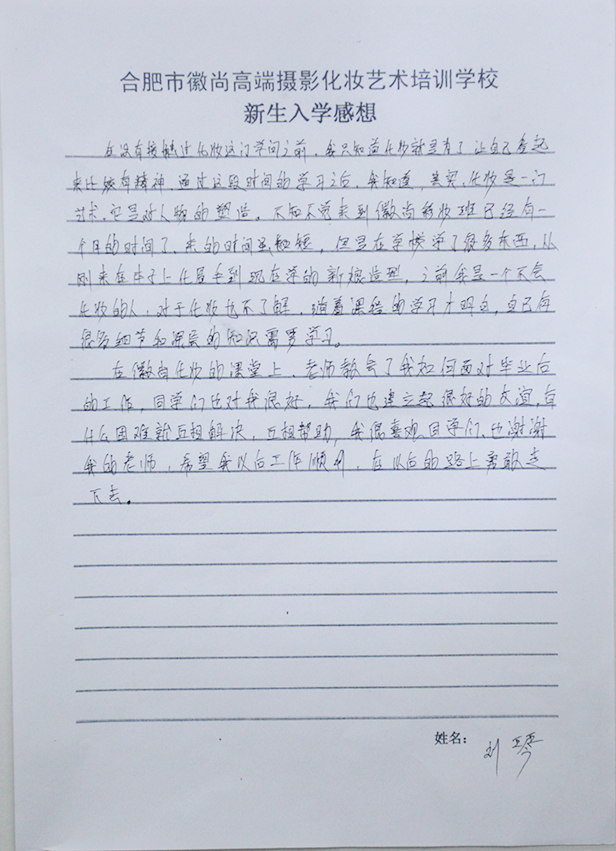 合肥市徽尚高端摄影化妆艺术培训学校
新生入学感想
在没有接触过化妆这门学问之前，我只知道化妆就是为了让自己看起
来比较有精神，通过这段时间的学习之后，我知道，其实，化妆是一门
艺术，它是对人物的塑造，不知不觉来到徽尚彩妆班已经有一
个月的时间了，来的时间虽短，但是在学校学了很多东西，从
刚来在牛子上化眉毛到现在学的新娘造型，之前我是一个不会
化妆的人，对于化妆也不了解，随着课程的学习才明白，自己有
很多细节和深层的知识需要学习。
在徽尚化妆的课堂上，老师教会了我如何面对毕业后
的工作，同学们也对我很好，我们也建立起很好的友谊，有
什么困难就互相解决，互相帮助，我很喜欢同学们，也谢谢
我的老师，希望我以后工作顺利，在以后的路上勇敢走
下去。
姓名：刘琴